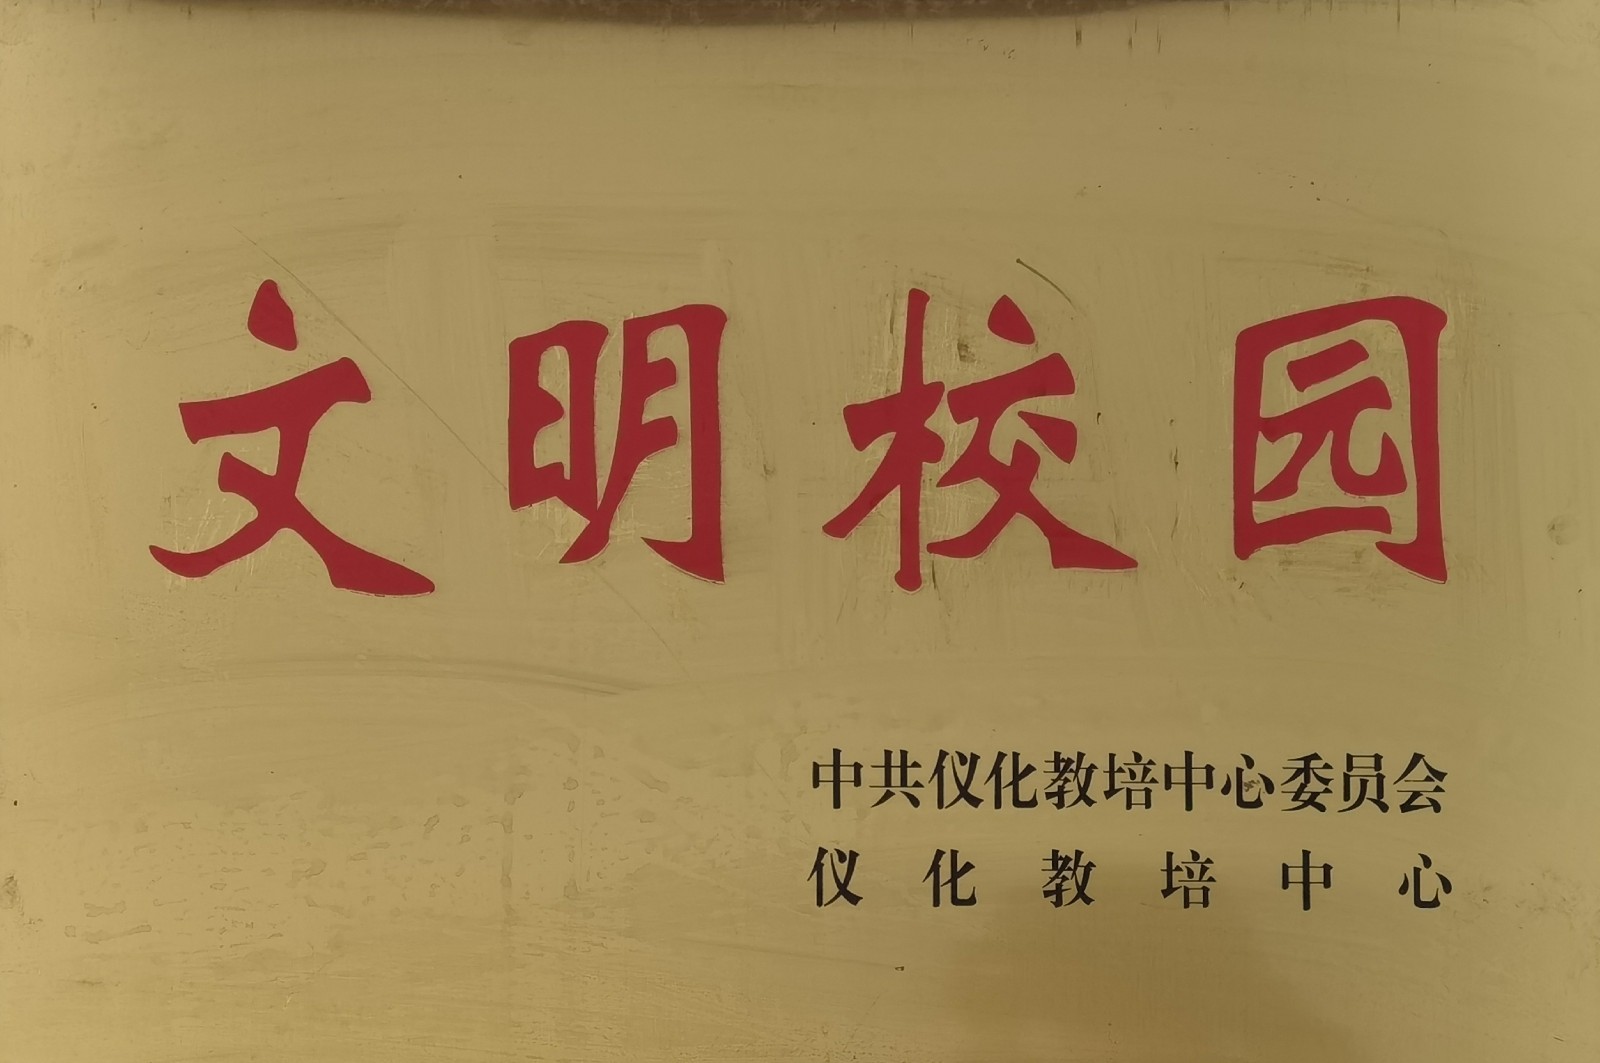 文明校园
中共仪化教培中心委员会
仪化教培中心